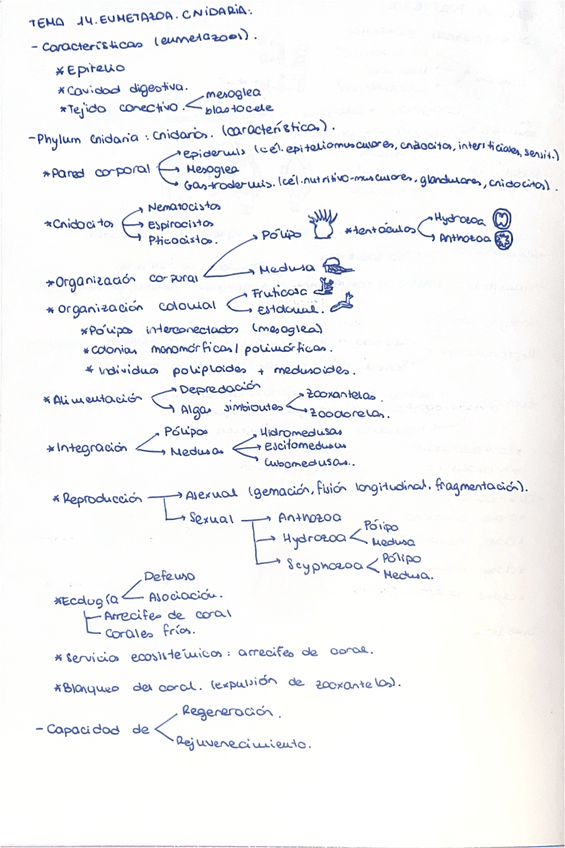 TEMA 14. EUMETAZOA. CNIDARIA.
- Características (eumetazoos).
* Epitelio
* Cavidad digestiva.
* Tejido conectivo. mesoglea
blastocele
- Phylum Cnidaria: Cnidarios. (características).
* Pared corporal epidermis (cél. epiteliomusculares, cnidocitos, intersticiales, sensit.)
Mesoglea
Gastrodermis. (cél. nutritivo-musculares, glandulares, cnidocitos).
* Cnidocitos Nematocistos
Espirocistos
Pticocistos.
* Organización corporal Pólipo * tentáculos Hydrozoa
Anthozoa
Medusa
* Organización colonial Fruticosa
Estolonial.
* Pólipos interconectados (mesoglea)
* Colonias monomórficas / polimórficas.
* Individuos poliploides + medusoides.
* Alimentación Depredación
Algas simbiontes zooxantelas.
zooclorelas.
* Integración Pólipos
Medusas Hidromedusas
Escifomedusas
Cubomedusas..
* Reproducción Asexual (gemación, fisión longitudinal, fragmentación).
Sexual Anthozoa
Hydrozoa Pólipo
Medusa
Scyphozoa Pólipo
Medusa.
* Ecología Defensa
Asociación.
Arrecifes de coral
Corales fríos.
* Servicios ecosistémicos: arrecifes de coral.
* Blanqueo del coral. (expulsión de zooxantelas).
- Capacidad de Regeneración.
Rejuvenecimiento.